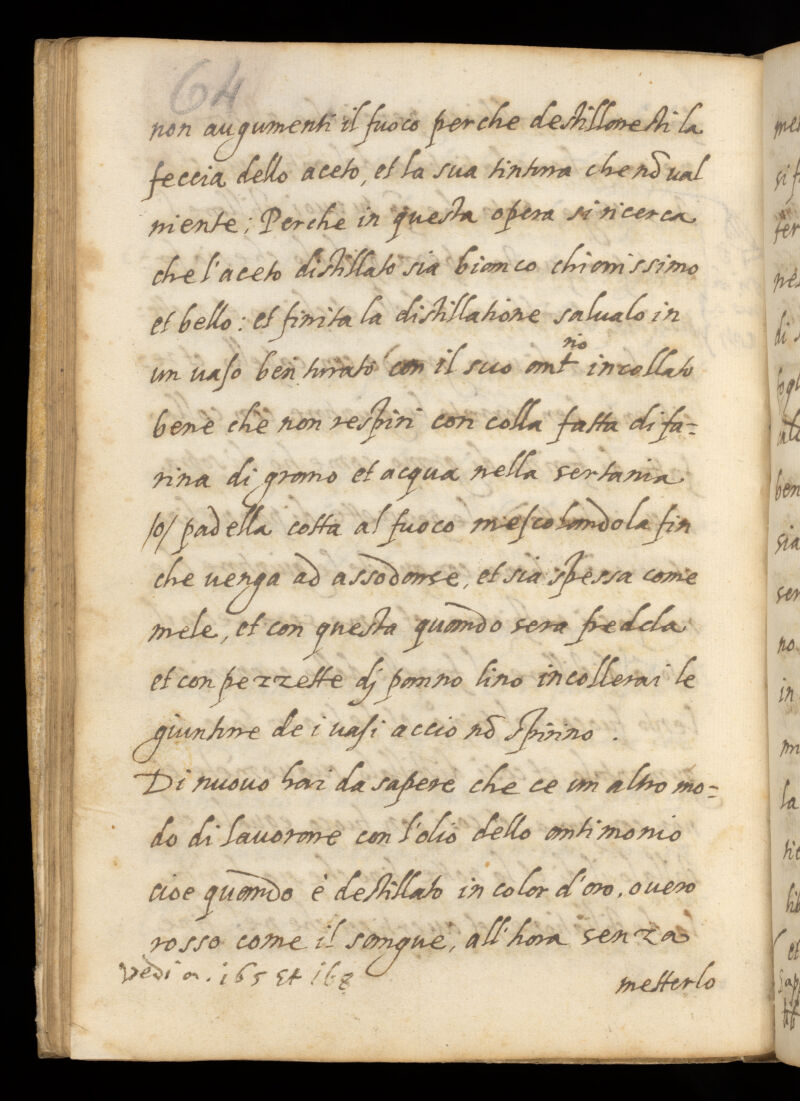 64
non augumenti il fuoco perche destillaresti la
feccia dello aceto, et la sua tintura che nō ual
niente; Perche in questa opera si ricerca
che l'aceto distillato sia bianco chiarissimo
et bello: et finita la distillatione salualo in
un uaso ben turrato con il suo ant.rio incollato
bene che non respiri con colla fatta di fa=
rina di grano et acqua nella sertania
/o/ padella cotta al fuoco mescolandola fin
che uenga ad assodarse, et sia spessa come
mele, et con questa quando sera fredda
et con pezzette dj panno lino incollerai le
giunture de i uasi accio nō spirino.
Di nuouo hai da sapere che ce un altro mo=
do di lauorare con l'olio dello antimonio
cioe quando è destillato in color d'oro, ouero
rosso come il sangue, all'hora senza
Vedi a. 165 et 168
metterlo